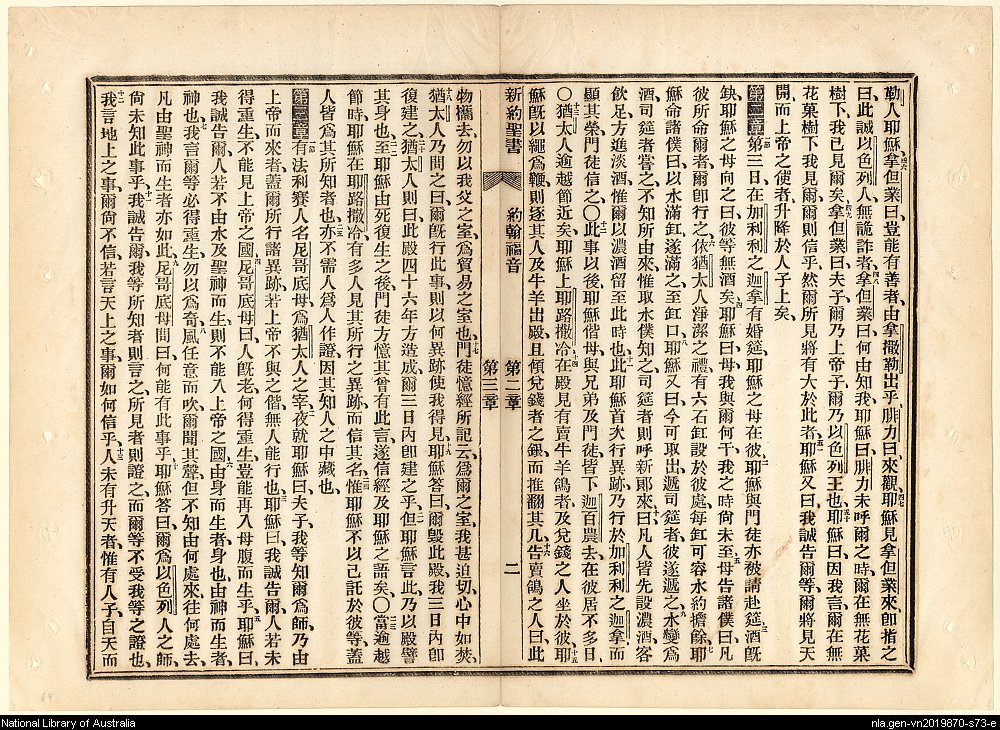 勒人耶穌、拿但業曰豈能有善者、由拿撒勒出乎、腓力曰來觀、耶穌見拿但業來、卽指之
曰此誠以色列人無詭詐者、拿但業曰何由知我、耶穌曰腓力未呼爾之時、爾在無花菓
樹下、我已見爾矣、拿但業曰夫子、爾乃上帝子、爾乃以色列王也、耶穌曰因我言爾在無
花菓樹下我見爾、爾則信乎、然爾所見將有大於此者、耶穌又曰我誠告爾等、爾將見天
開、而上帝之使者、升降於人子上矣、
第二章 第三日、在加利利之迦拿有婚筵、耶穌之母在彼、耶穌與門徒亦被請赴筵、酒旣
缺、耶穌之母向之曰、彼等無酒矣、耶穌曰、母、我與爾何干、我之時尙未至、母告諸僕曰、凡
彼所命爾者、爾卽行之、依猶太人淨潔之禮、有六石缸設於彼處、每缸可容水約擔餘、耶
穌命諸僕曰、以水滿缸、遂滿之至缸口、耶穌又曰今可取出遞司筵者、彼遂遞之、水變爲
酒、司筵者嘗之、不知所由來、惟取水僕知之、司筵者則呼新郎來、曰凡人皆先設濃酒、客
飲足方進淡酒、惟爾以濃酒留至此時也、此耶穌首次行異跡、乃行於加利利之迦拿、而
顯其榮、門徒信之、〇此事以後、耶穌偕母與兄弟及門徒、皆下迦百農去、在彼居不多日、
〇猶太人逾越節近矣、耶穌上耶路撒冷、在殿見有賣牛羊鴿者、及兌錢之人坐於彼、耶
穌旣以繩爲鞭、則逐其人及牛羊出殿、且傾兌錢者之銀、而推翻其几、告賣鴿之人曰、此
新約聖書 約翰福音 第二章 第三章 二
物攜去、勿以我父之室、爲貿易之室也、門徒憶經所記云、爲爾之室、我甚迫切、心中如焚、
猶太人乃問之曰、爾旣行此事、則以何異跡使我得見、耶穌答曰、爾毀此殿、我三日內卽
復建之、猶太人則曰、此殿四十六年方造成、爾三日內卽建之乎、但耶穌言此、乃以殿譬
其身也、至耶穌由死復生之後、門徒方憶其曾有此言、遂信經及耶穌之語矣、〇當逾越
節時、耶穌在耶路撒冷、有多人見其所行之異跡、而信其名、惟耶穌不以己託於彼等、蓋
人皆爲其所知者也、亦不需人爲人作證、因其知人之中藏也、
第三章 有法利賽人、名尼哥底母、爲猶太人之宰、夜就耶穌曰、夫子、我等知爾爲師、乃由
上帝而來者、蓋爾所行諸異跡、若上帝不與之偕、無人能行也、耶穌曰、我誠告爾、人若未
得重生、不能見上帝之國、尼哥底母曰、人旣老、何得重生、豈能再入母腹而生乎、耶穌曰、
我誠告爾、人若不由水及聖神而生、則不能入上帝之國、由身而生者身也、由神而生者
神也、我言爾等必得重生、勿以爲奇、風任意而吹、爾聞其聲、但不知由何處來、往何處去、
凡由聖神而生者亦如此、尼哥底母問曰、何能有此事乎、耶穌答曰、爾爲以色列人之師、
尙未知此事乎、我誠告爾、我等所知者則言之、所見者則證之、而爾等不受我等之證也、
我言地上之事、爾尙不信、若言天上之事、爾如何信乎、人未有升天者、惟有人子、自天而
National Library of Australia
nla.gen-vn2019870-s73-e